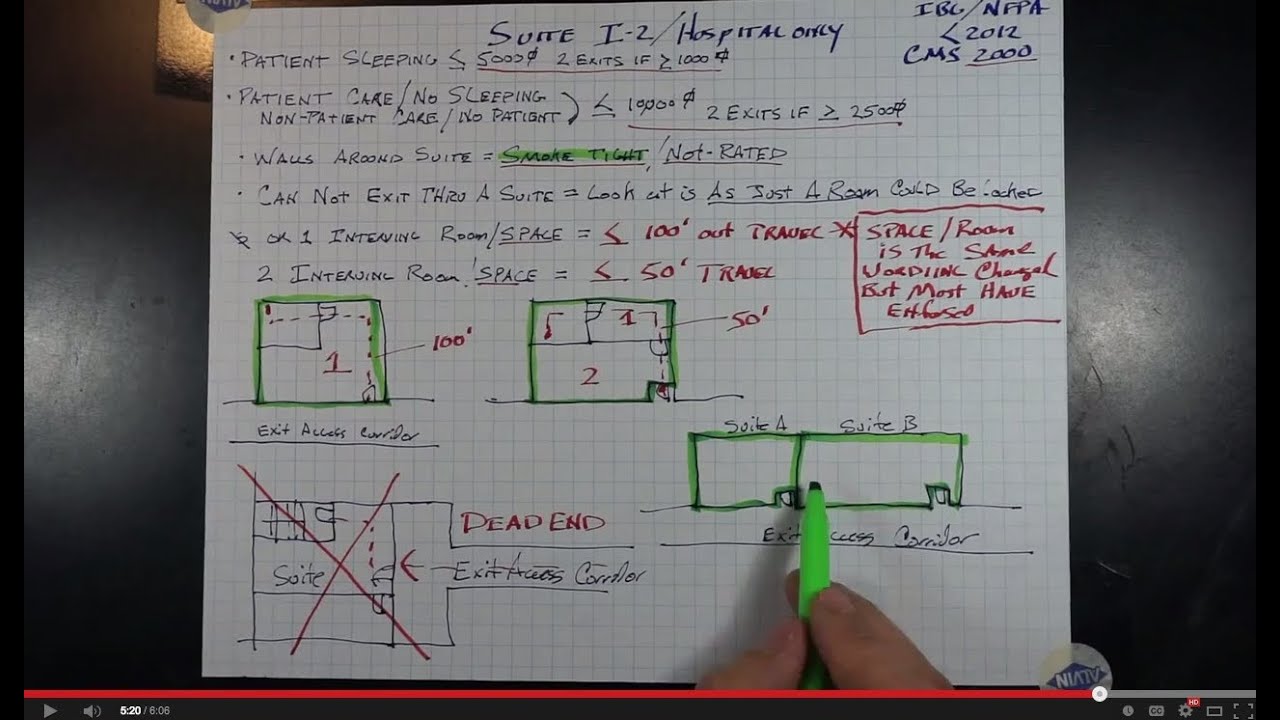 SUITE I-2/HOSPITAL ONLY
IBC/NFPA
< 2012
CMS 2000
• PATIENT SLEEPING ≤ 5000⌀ 2 EXITS IF ≥ 1000⌀
• PATIENT CARE/NO SLEEPING
NON-PATIENT CARE/NO PATIENT ) ≤ 10,000⌀ 2 EXITS IF ≥ 2500⌀
• WALLS AROUND SUITE = SMOKE TIGHT/NOT-RATED
• CAN NOT EXIT THRU A SUITE = Look at is As Just A Room COULD Be locked
OR 1 INTERVING ROOM/SPACE = ≤ 100' out TRAVEL *
2 INTERVING ROOM/SPACE = ≤ 50' TRAVEL
SPACE/ROOM
is The SAME
WORDIING Changed
But Most HAVE
Enforced
1
100'
Exit Access Corridor
1
2
50'
Suite A
Suite B
Exit Access Corridor
DEAD END
Suite
Exit Access Corridor
ALVIN
5:20 / 6:06
CC
HD